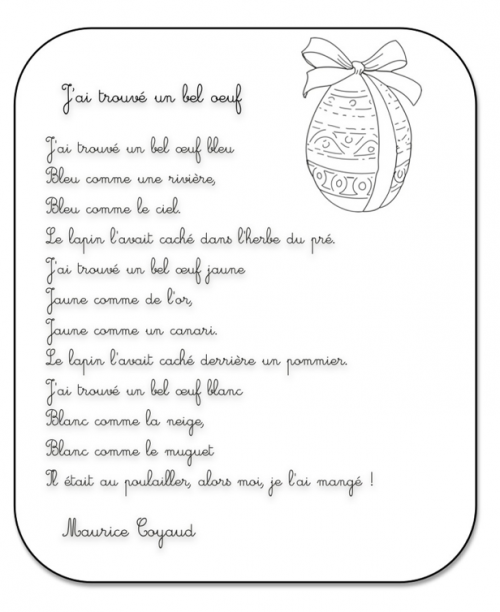 J'ai trouvé un bel oeuf
J'ai trouvé un bel œuf bleu
Bleu comme une rivière,
Bleu comme le ciel.
Le lapin l'avait caché dans l'herbe du pré.
J'ai trouvé un bel œuf jaune
Jaune comme de l'or,
Jaune comme un canari.
Le lapin l'avait caché derrière un pommier.
J'ai trouvé un bel œuf blanc
Blanc comme la neige,
Blanc comme le muguet
Il était au poulailler, alors moi, je l'ai mangé !
Maurice Coyaud